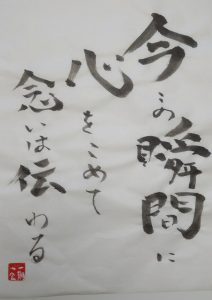 今この瞬間に
心をこめて
念いは伝わる